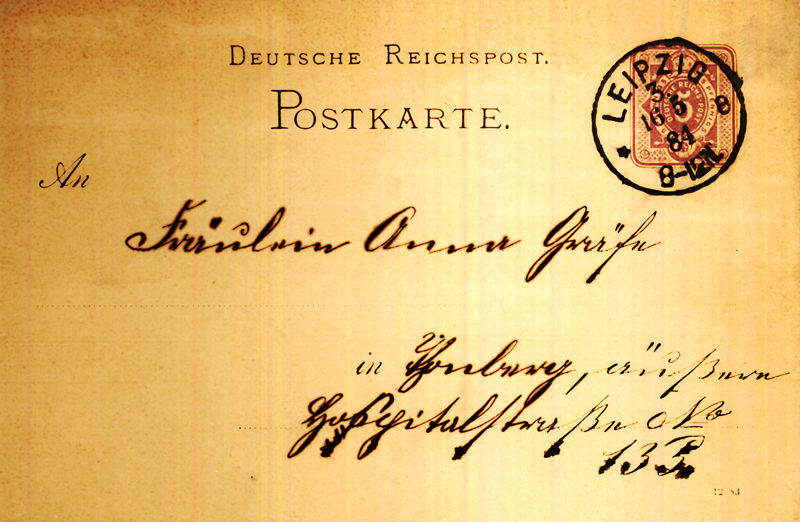 DEUTSCHE REICHSPOST.
POSTKARTE.
LEIPZIG 8
3.
16 5
84
8-12N.
An
Fräulein Anna Gräfe
in Thonberg, äußere
Hospitalstraße No
13
12 83